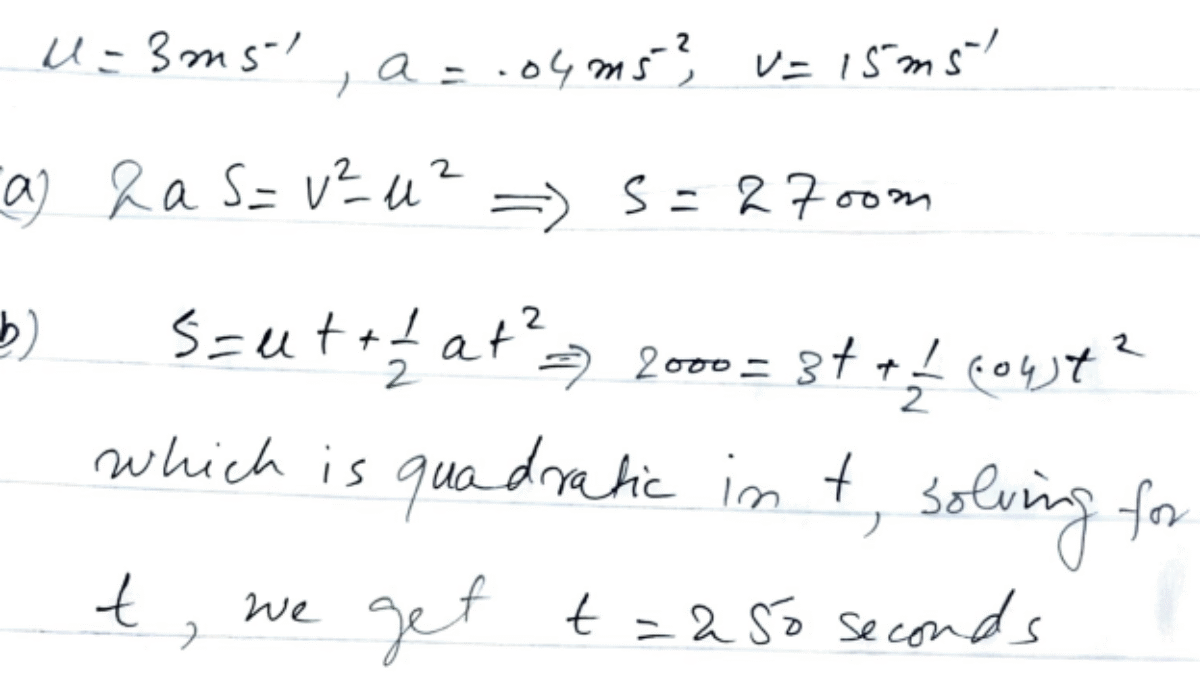 u = 3 m s⁻¹, a = .04 m s⁻², v = 15 m s⁻¹
(a) 2 a S = v² - u² ⟹ S = 2700m
b) S = u t + 1/2 a t² ⟹ 2000 = 3t + 1/2 (.04) t²
which is quadratic in t, solving for
t, we get t = 250 seconds